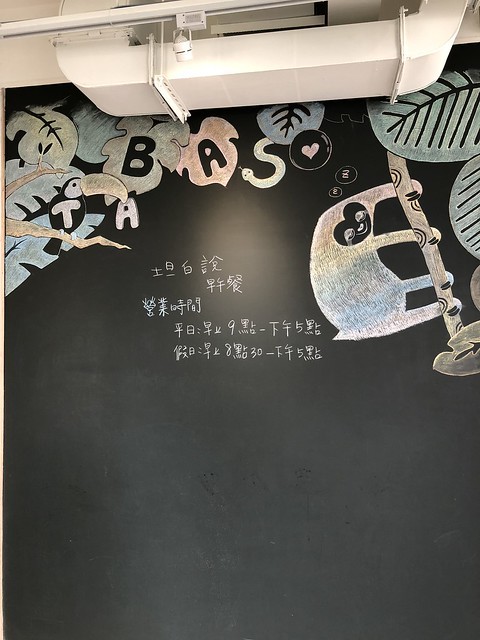 BAS
TA
坦白說
早午餐
營業時間
平日:早上9點-下午5點
假日:早上8點30-下午5點